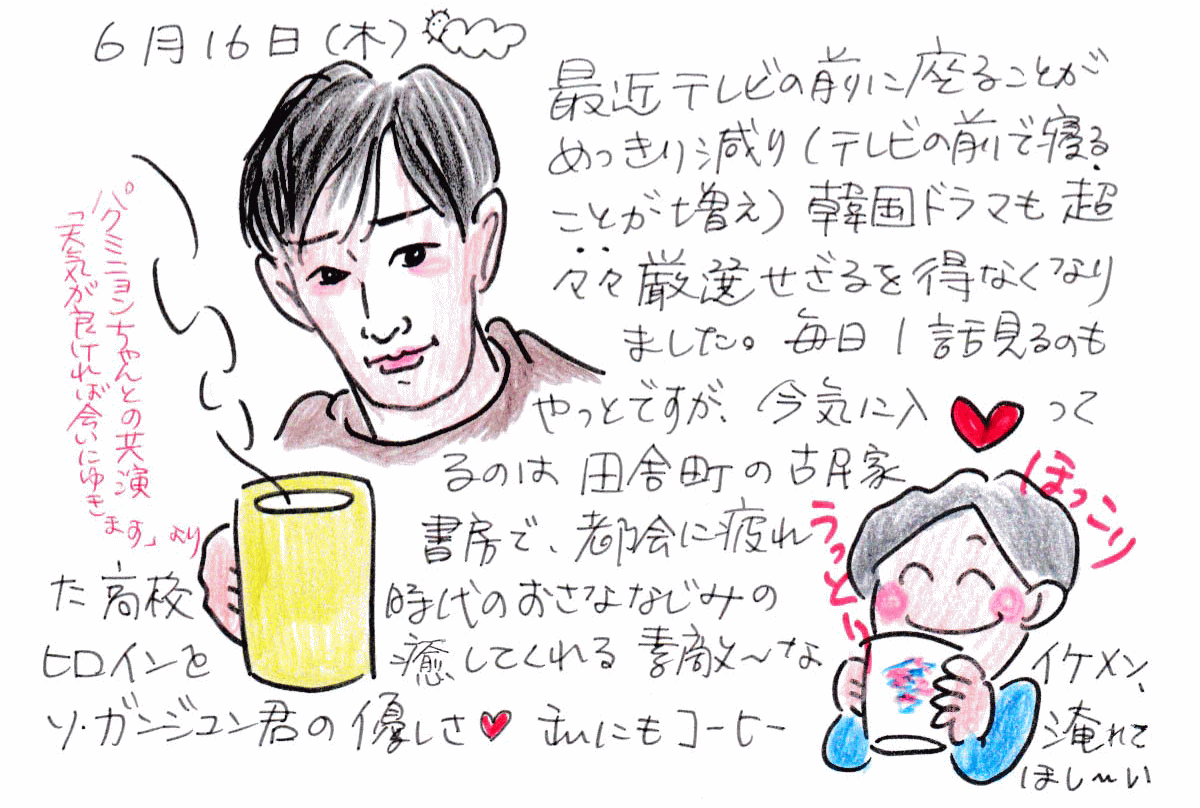 6月16日(木)
最近テレビの前に座ることが
めっきり減り(テレビの前で寝る
ことが増え)韓国ドラマも超
々々厳選せざるを得なくなり
ました。毎日1話見るのも
やっとですが、今気に入♥って
るのは田舎町の古民家
書房で、都会に疲れ
た高校時代のおさななじみの
ヒロインを癒してくれる素敵〜な
ソ・ガンジュン君の優しさ♥私にもコーヒー
淹れて
ほし〜い
イケメン、
ほっこり
うっとり
パクミニョンちゃんとの共演
「天気が良ければ会いにゆきます」より